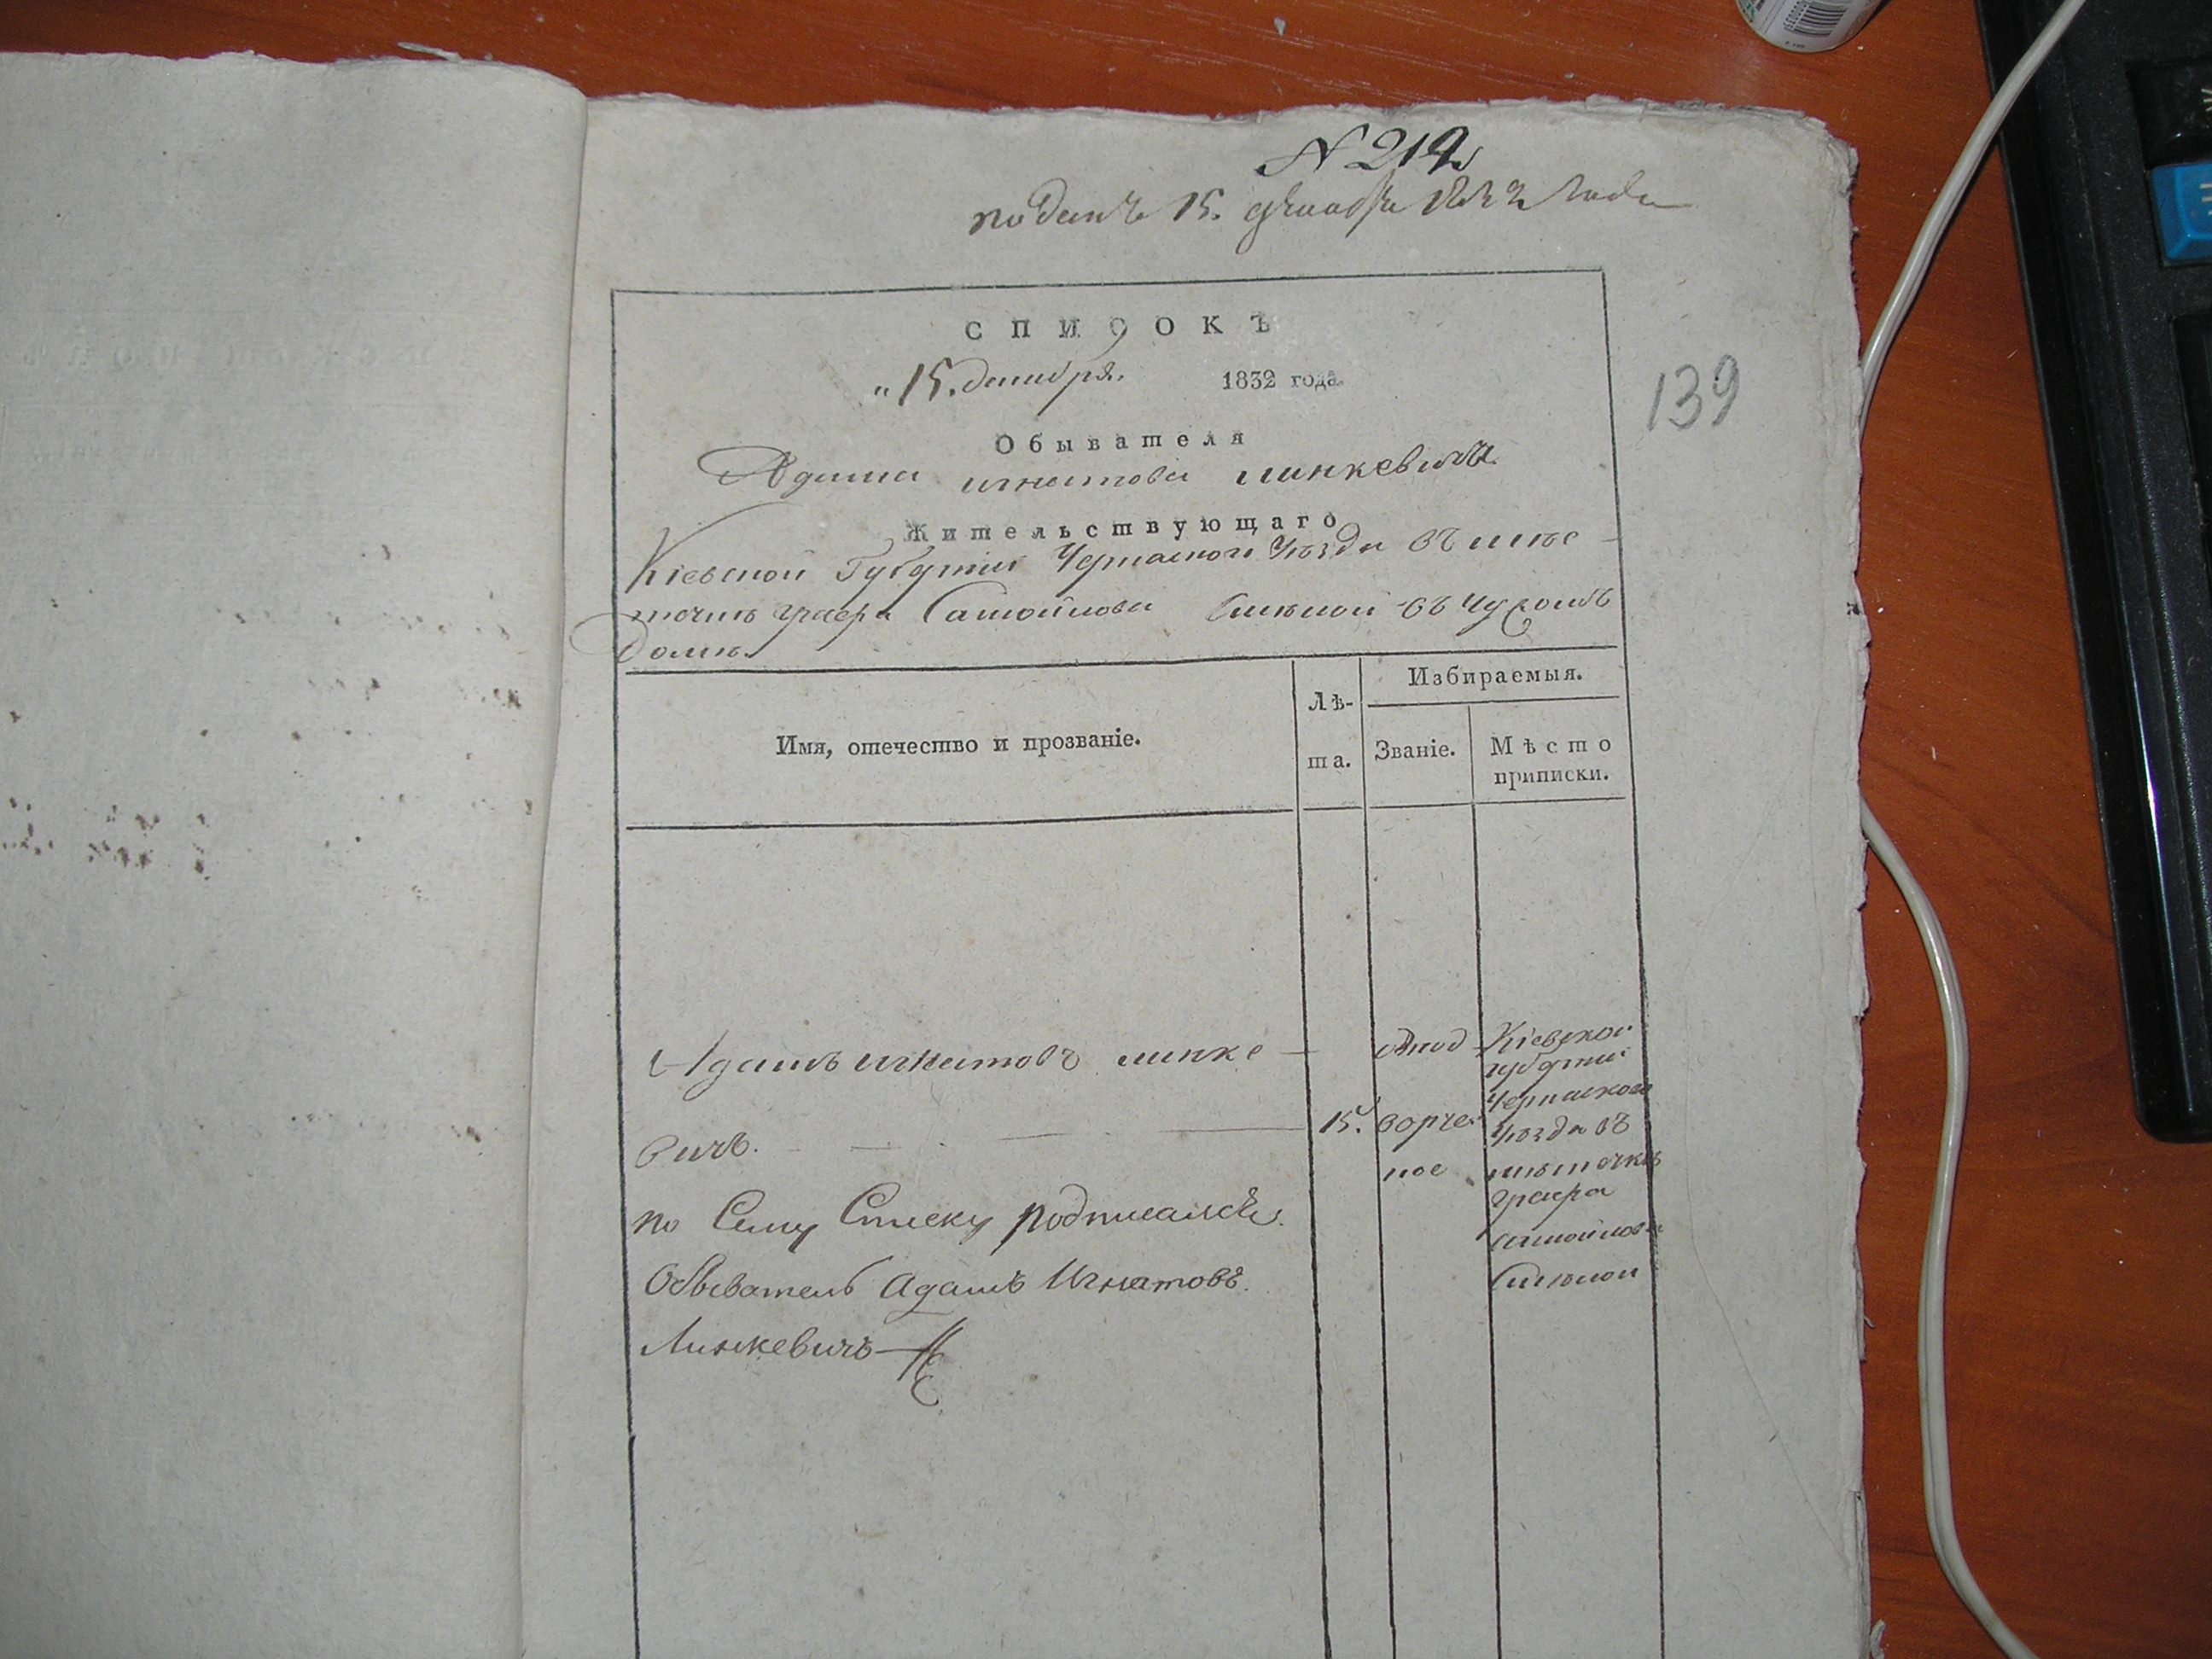 N 219
поданъ 15. декабря 1832 года
СПИСОКЪ
„15. декабря. 1832 года.
Обывателя
Адама игнатова линкевича
Жительствующаго
Кіевской Губерніи Черкаского Уѣзда въ мѣс-
течкѣ графа Самойлова Смѣлой въ чужомъ
домѣ.
139
Имя, отечество и прозваніе.
Лѣ-
та.
Избираемыя.
Званіе.
Мѣсто
приписки.
Адамъ игнатовъ линке-
вичъ.
15.
однод-
ворче-
ное
Кіевской
губерніи
Черкаского
Уѣзда въ
мѣстечкѣ
графа
самойлова
Смѣлой
по Сему Списку подписался
Обыватель Адамъ Игнатовъ.
Линкевичъ